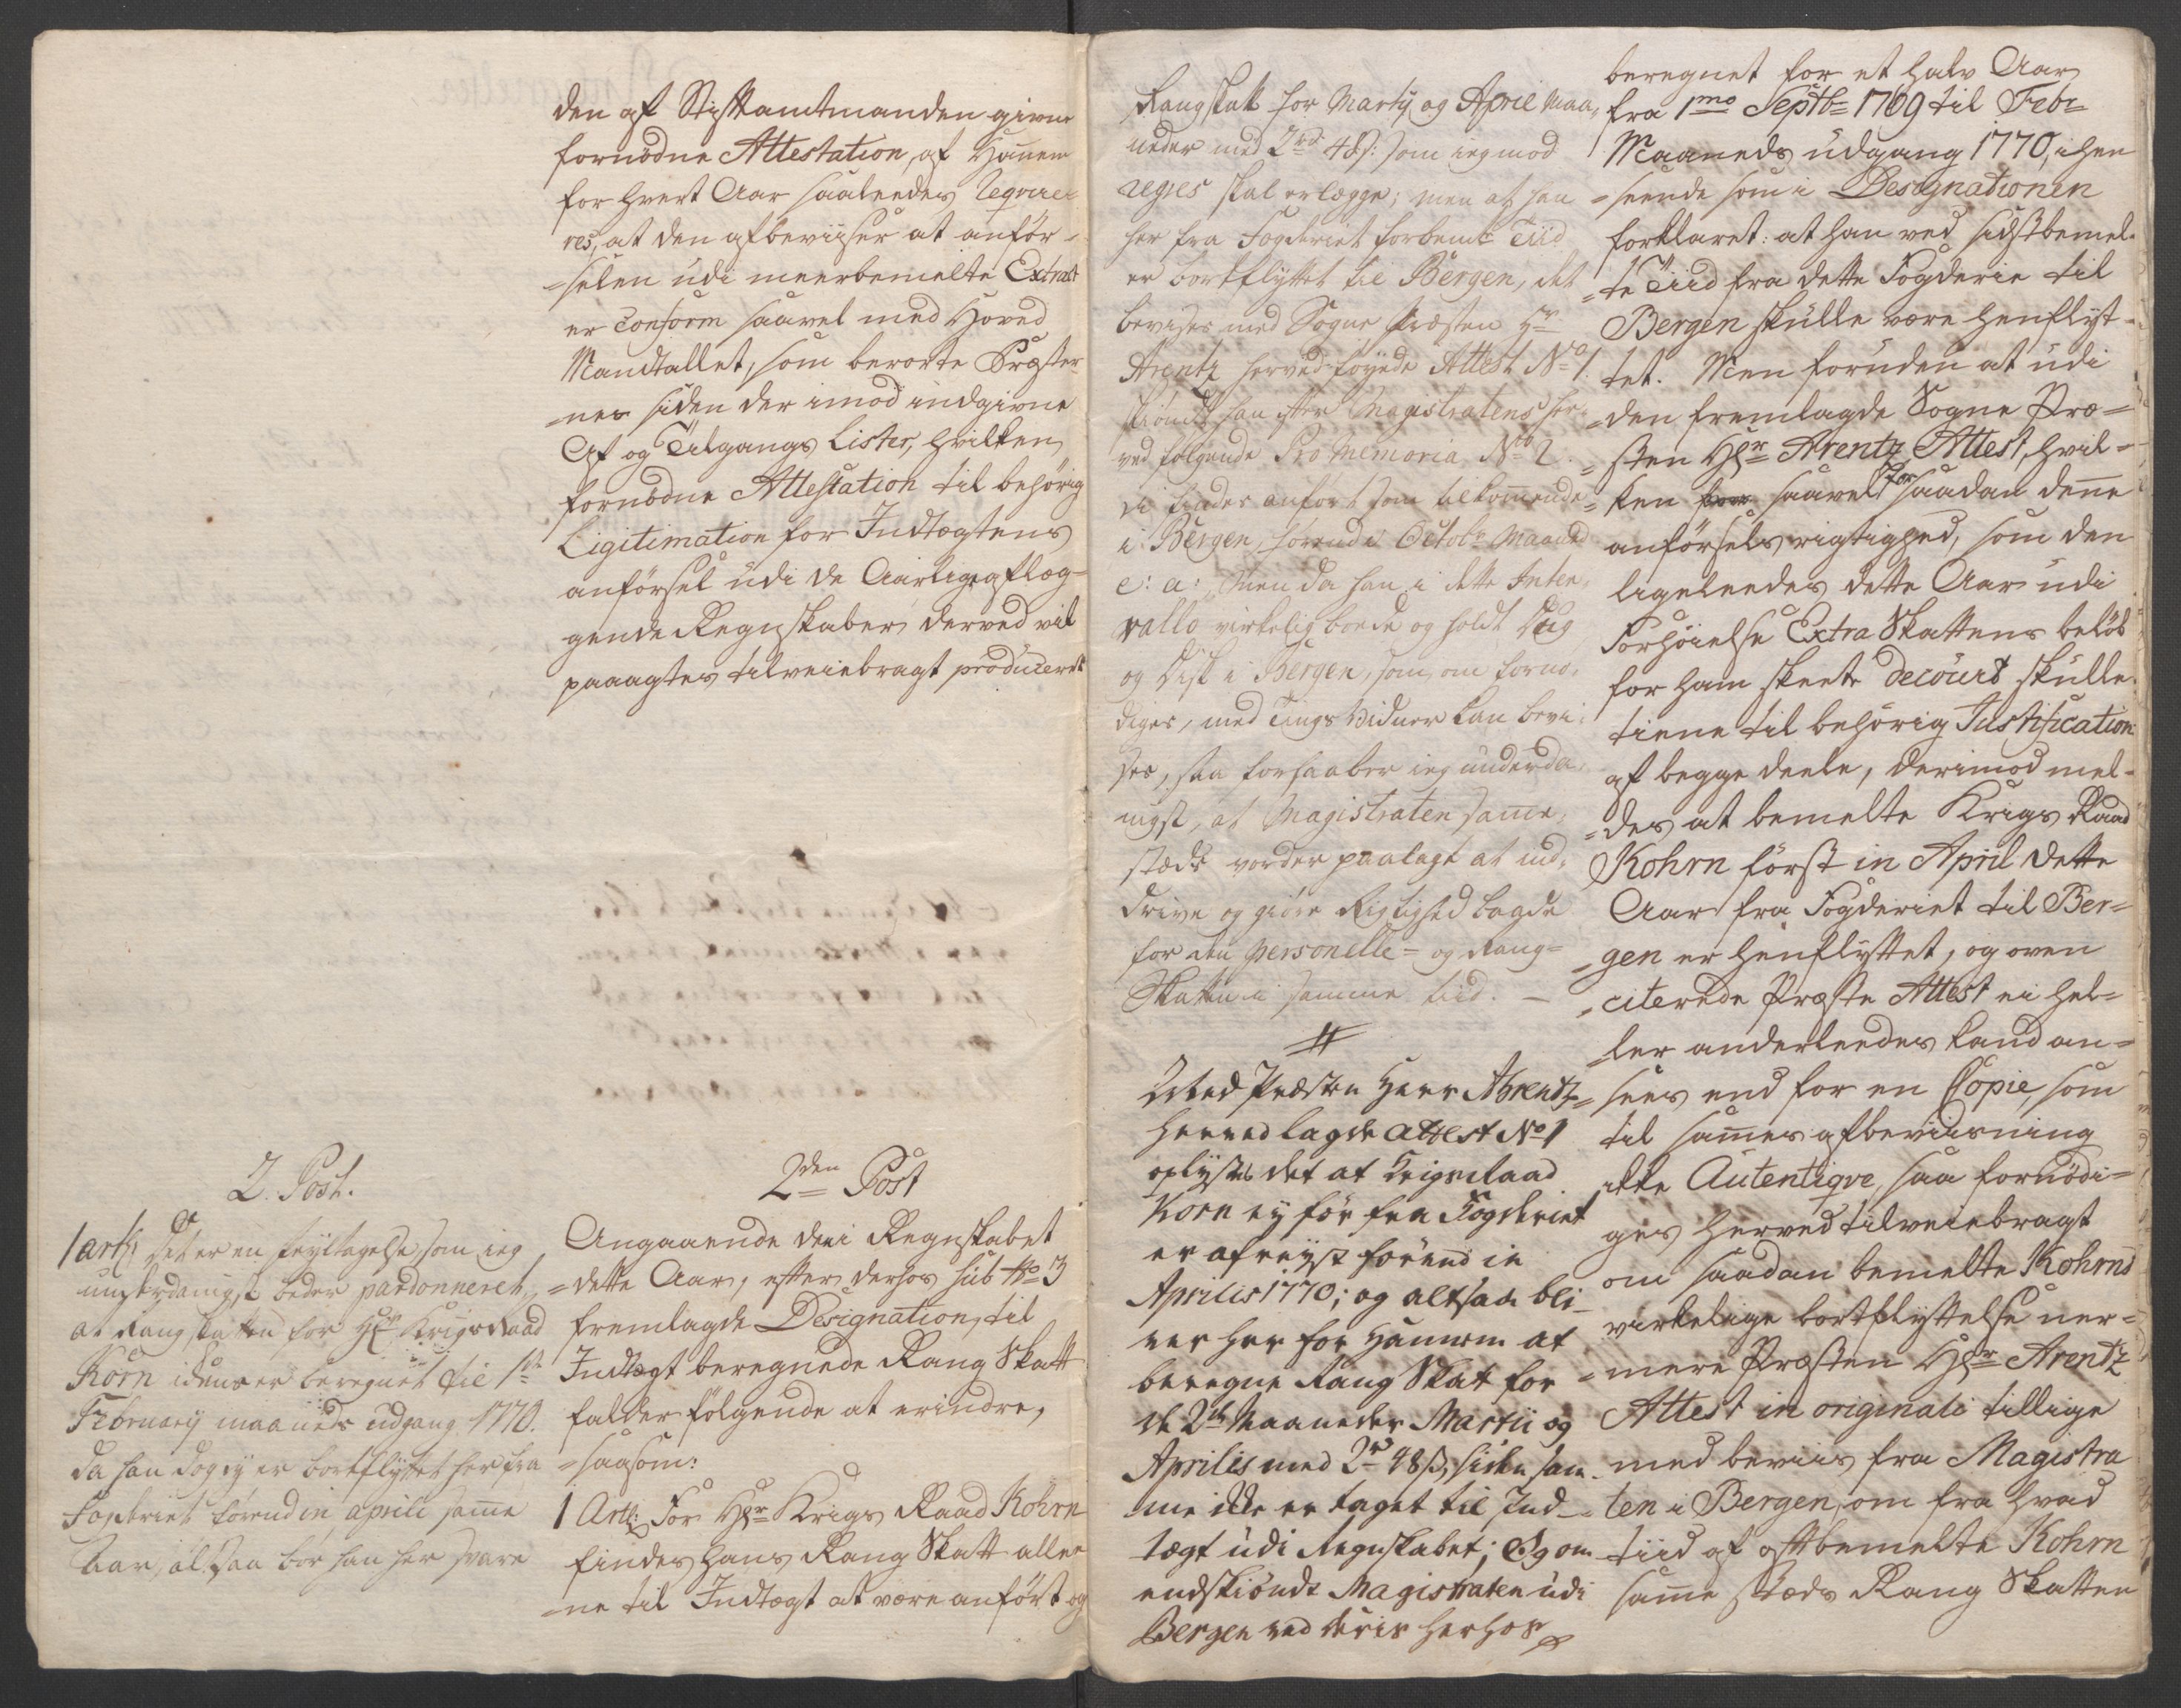 den af Stiftamtmanden givne
fornødne Attestation, af Hannem
for hvert Aar saaleedes reqvire-
res, at den afbeviiser at anför-
=selen udi meerbemelte Extract
er conform saavel med Hoved
Mandtallet, som berørte Præster-
=nes siden der imod indgivne
Af og Tilgangs Lister, hvilken
fornödne Attestation til behörig
Ligitimation for Indtægtens
anförsel udi de Aarlige aflæg-
gende Regnskaber derved vil
paaagtes tilveiebragt produceret
2. Post.
1 art: Det er en feyltagelse som ieg
underdanigst beder pardonneret,
at Rangskatten for Hr Krigs Raad
Korn idens er beregnet til
February maaneds udgang 1770.
da han dog ey er bortflyttet her fra
Fogderiet førend in aprili samme
Aar, alsaa bør han her svare
2den Post
Angaaende den i Regnskabet
=dette Aar, efter derhos sub No 3
fremlagde Designation, til
Indtægt beregnede Rang Skatt
falder fölgende at erindre,
=saasom:
1 Artl: For Hr Krigs Raad Kohrn
findes hans Rang Skatt alle-
=ne til Indtægt at være anfört og
Rangskatt for Martij og April Maa-
neder med 2rd 48s: som ieg mod
regres skal erlægge; men at han
her fra Fogderiet forbemte Tiid
er bortflyttet til Bergen, det
bevises med Sogne Præsten Hr
Arentz herved föyede Attest No 1.
skiöndt han efter Magistratens her-
ved fölgende Pro Memoria No 2.
ei findes anfört som tilkommende
i Bergen, førend i Octobr Maaned
e: a: Men da han i dette Inter-
vallo virkelig boede og holdt Dug
og Disk i Bergen, som om fornö-
diges, med Tings Vidner kan bevi-
ses, saa forhaaber ieg underda-
nigst, at Magistraten samme-
stæds vorder paalagt at ind-
drive og giöre Rigtighed bagde
for den personelle- og Rang-
Skatten i samme tiid. —
#
Med Præsten Herr Ahrentz
herved lagde attest No 1
oplyses det at Krigs Raad
Korn ey för fra Fogderiet
er afreyst förend in
Aprilis 1770; og altsaa bli-
ver her for Hannem at
beregne Rang Skat for
de 2de Maaneder Martii og
Aprilis med 2rd 48s, siden sam-
me ikke er taget til Ind-
tægt udi Regnskabet; Og om
endskiöndt Magistraten udi
Bergen ved deris herhos
beregnet for et halv Aar
fra 1mo Septb= 1769 til Febr=
Maaneds udgang 1770, i hen
=seende som i Designationen
forklaret: at han ved sidstbemel-
=te Tiid fra dette Fogderie til
Bergen skulle være henflyt-
tet. Men foruden at udi
=den fremlagde Sogne Præ=
=sten Hr Arentz Attest, hvil=
=ken saavel for saadan denne
anförsels rigtighed, som den
ligeleedes dette Aar udi
Forhöielse Extra Skattens belöb
for ham skeete decourt skulle
tiene til behörig Justification
af begge deele, derimod mel-
=des at bemelte Krigs Raad
Kohrn först in April dette
Aar fra Fogderiet til Ber=
=gen er henflyttet, og oven
=citerede Præste Attest ei hel=
=ler anderleedes kand an=
=sees end for en Copie, som
til sammes afbeviisning
ikke Autentiqve, saa fornödi=
ges herved tilveiebragt
om saadan bemelte Kohrns
virkelige bortflyttelse ner=
=mere Præsten Hr Arentz
Attest in originali tillige
med beviis fra Magistra
=ten i Bergen, om fra hvad
tiid af oftbemelte Kohrn
samme stæds Rang Skatten